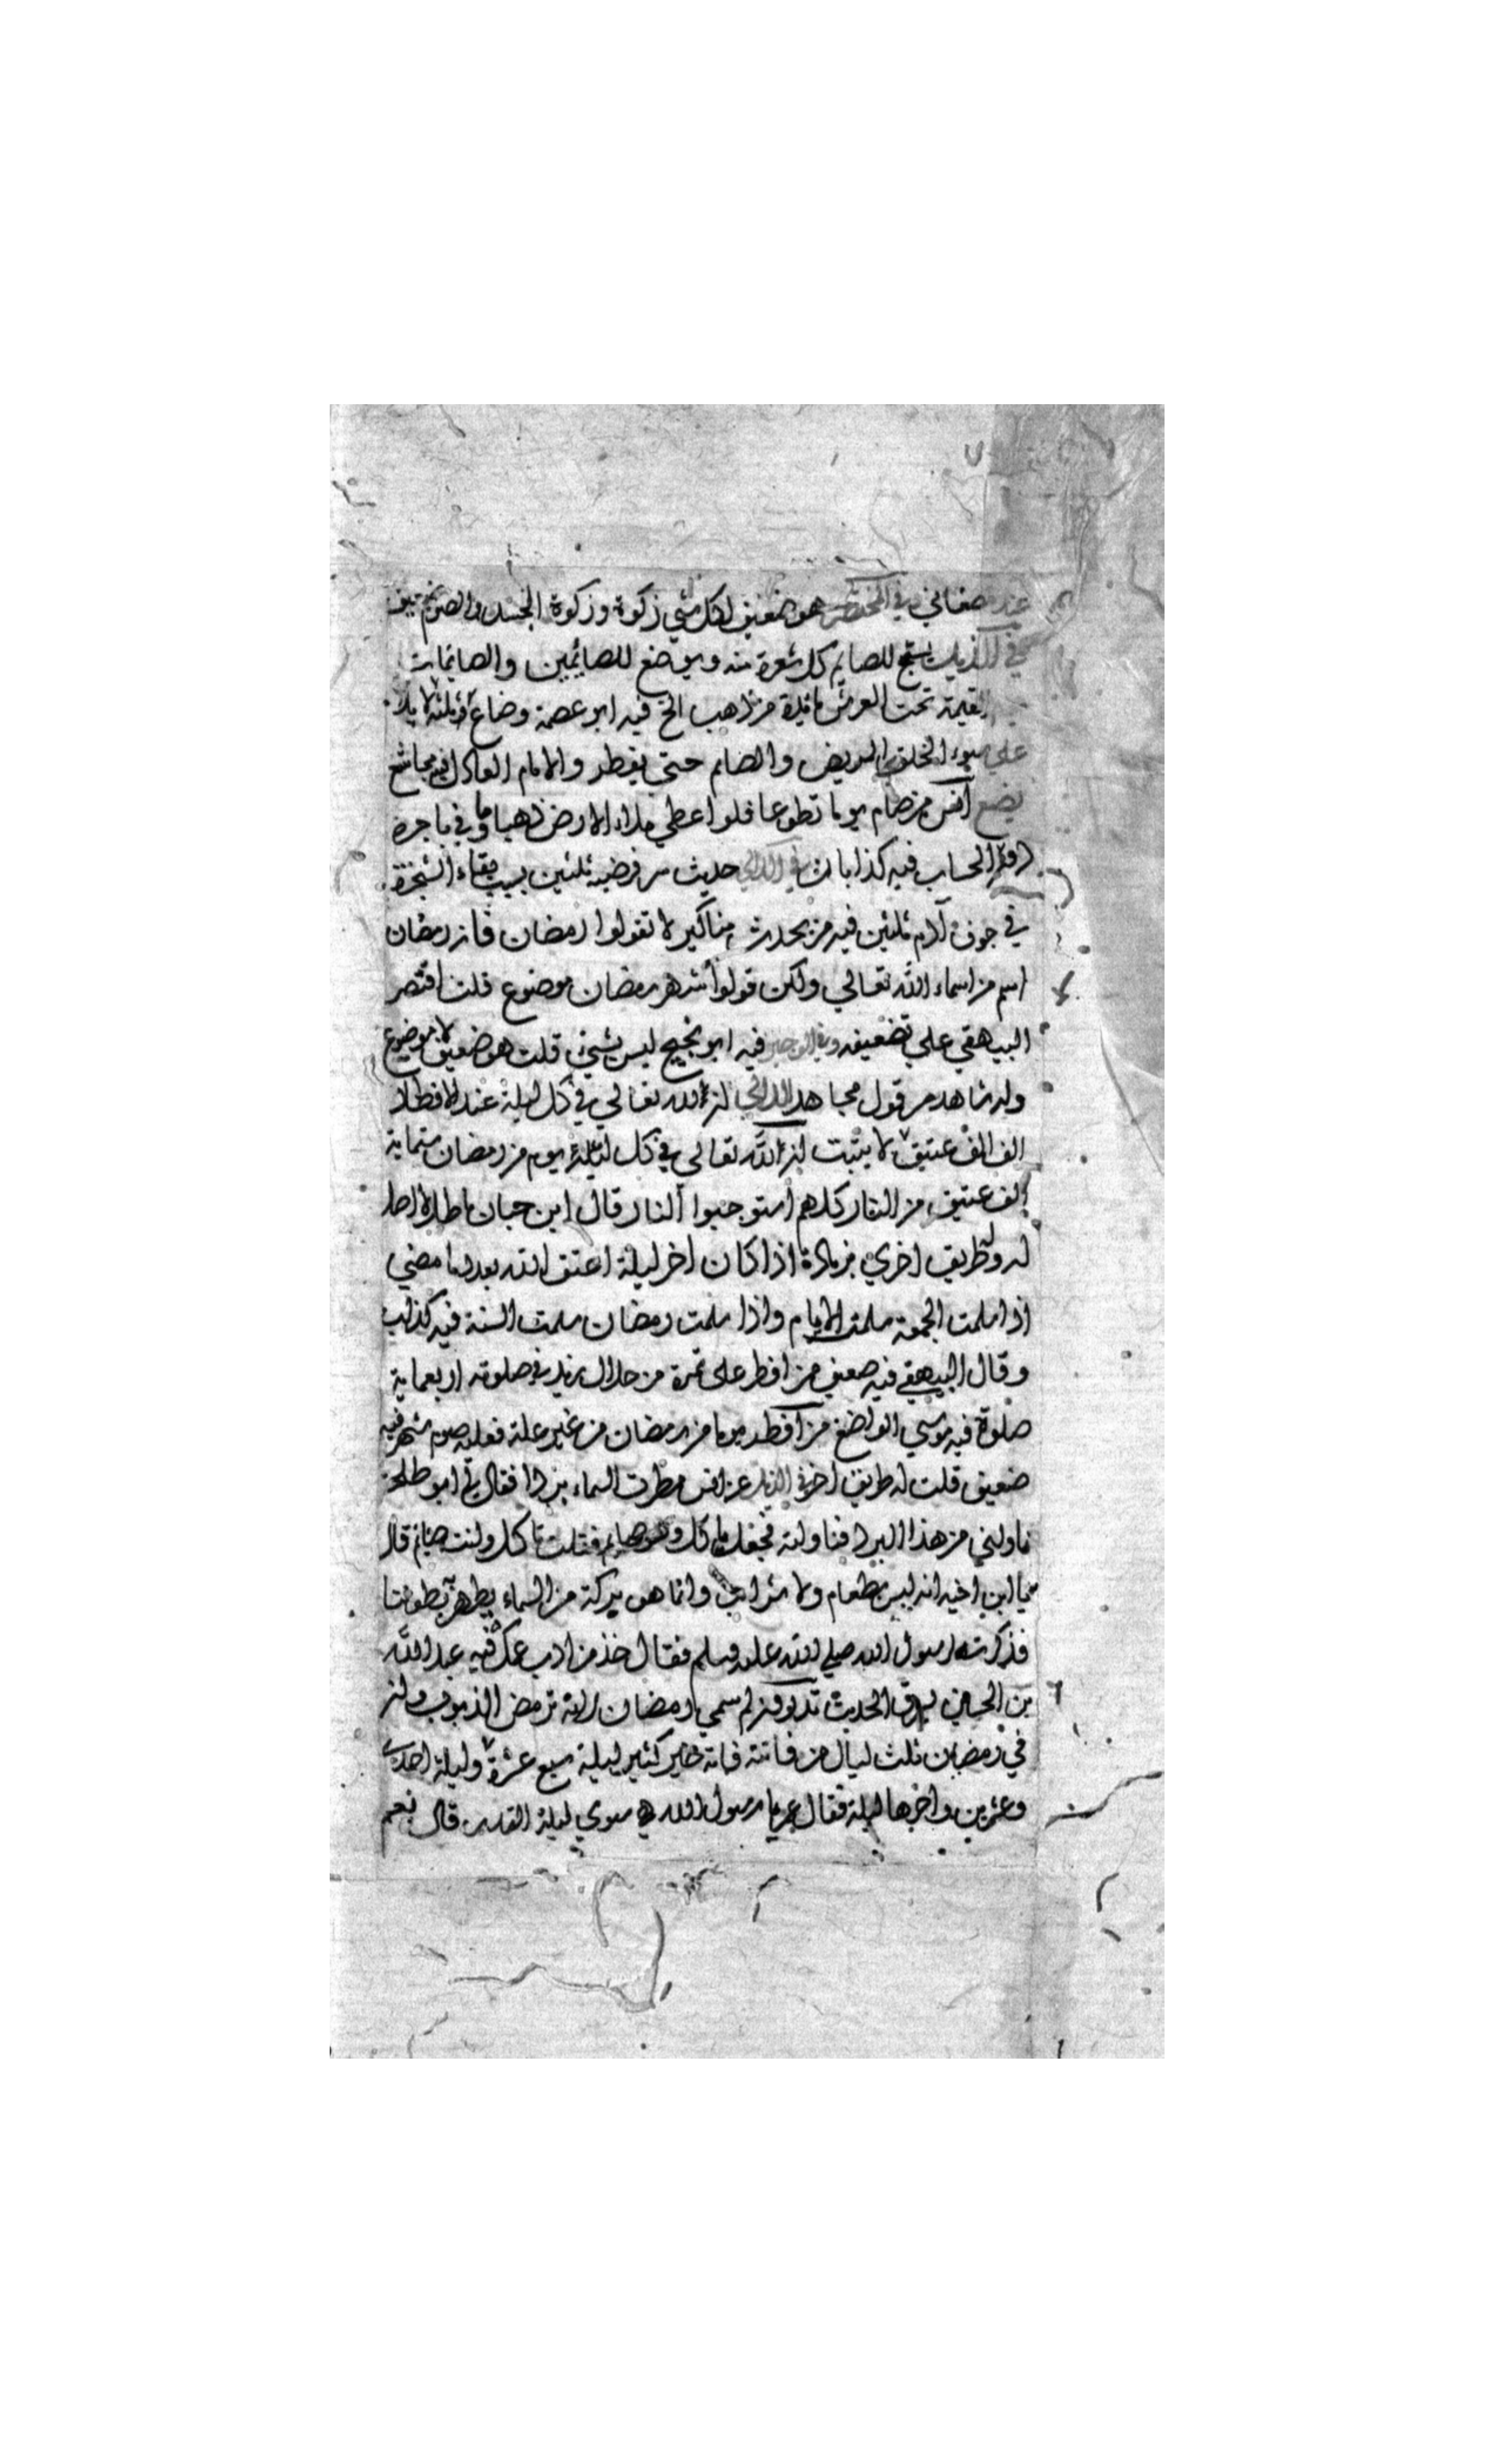 عند صغاني في المختصر هو ضعيف لكل شي زكوة وزكوة الجسد والصوم ضعيف
في الذيل يسبح للصايم كل شعرة منه ويوضع للصائمين والصايمات
القيمة تحت العرش مائدة من ذهب الخ فيه ابو عصمة وضاع ثلثة لا يلام
على سوء الخلق المريض والصايم حتي يفطر والامام العادل فيه مجاشع
يضع انس من صام يوما تطوعا فلو اعطي ملاء الارض ذهبا ما وفي باجره
دون الحساب فيه كذابان في اللالي حديث سر فرضية ثلثين بسبب بقاء الشجرة
في جوف آدم ثلثين فيه من يحدث مناكير لا تقولوا رمضان فان رمضان
اسم من اسماء الله تعالي ولكن قولوا شهر رمضان موضوع قلت اقتصر
البيهقي علي تضعيفه وفي الوجيز فيه ابو نجيح ليس بشيء قلت هو ضعيف لا موضوع
وله شاهد من قول مجاهد اللالي ان لله تعالي في كل ليلة عند الافطار
الف الف عتيق لا يثبت ان لله تعالي في كل ليلة يوم من رمضان ستماية
الف عتيق من النار كلهم استوجبوا النار قال ابن حبان باطل لا اصل
له وله طريق اخري بزيادة اذا كان اخر ليلة اعتق الله بعدد ما مضي
اذا سلمت الجمعة سلمت الايام واذا سلمت رمضان سلمت السنة فيه كذاب
وقال البيهقي فيه ضعيف من افطر على تمرة من حلال زيد في صلوته اربعماية
صلوة فيه موسي الواضع من افطر يوما من رمضان من غير علة فعليه صوم شهر فيه
ضعيف قلت له طريق اخر في الذيل عن انس مطرت السماء بردا فقال لي ابو طلحة
ناولني من هذا البرد فناولته فجعل ياكل وهو صايم فقلت تاكل وانت صايم قال
يا ابن اخي انه ليس بطعام ولا شراب وانما هو بركة من السماء يطهر به بطوننا
فذكرته لرسول الله صلي الله عليه وسلم فقال خذ من ادب عمك فيه عبد الله
بن الحسين يسرق الحديث تدرون لم سمي رمضان لانه ترمض الذنوب وان
في رمضان ثلث ليال من فاتته فاته خير كثير ليلة سبع عشرة وليلة احدى
وعشرين واخرها ليلة فقال عمر يا رسول الله هي سوي ليلة القدر قال نعم